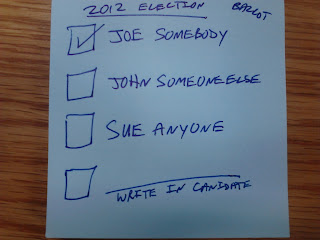 2012 ELECTION BALLOT
JOE SOMEBODY
JOHN SOMEONEELSE
SUE ANYONE
WRITE IN CANIDATE